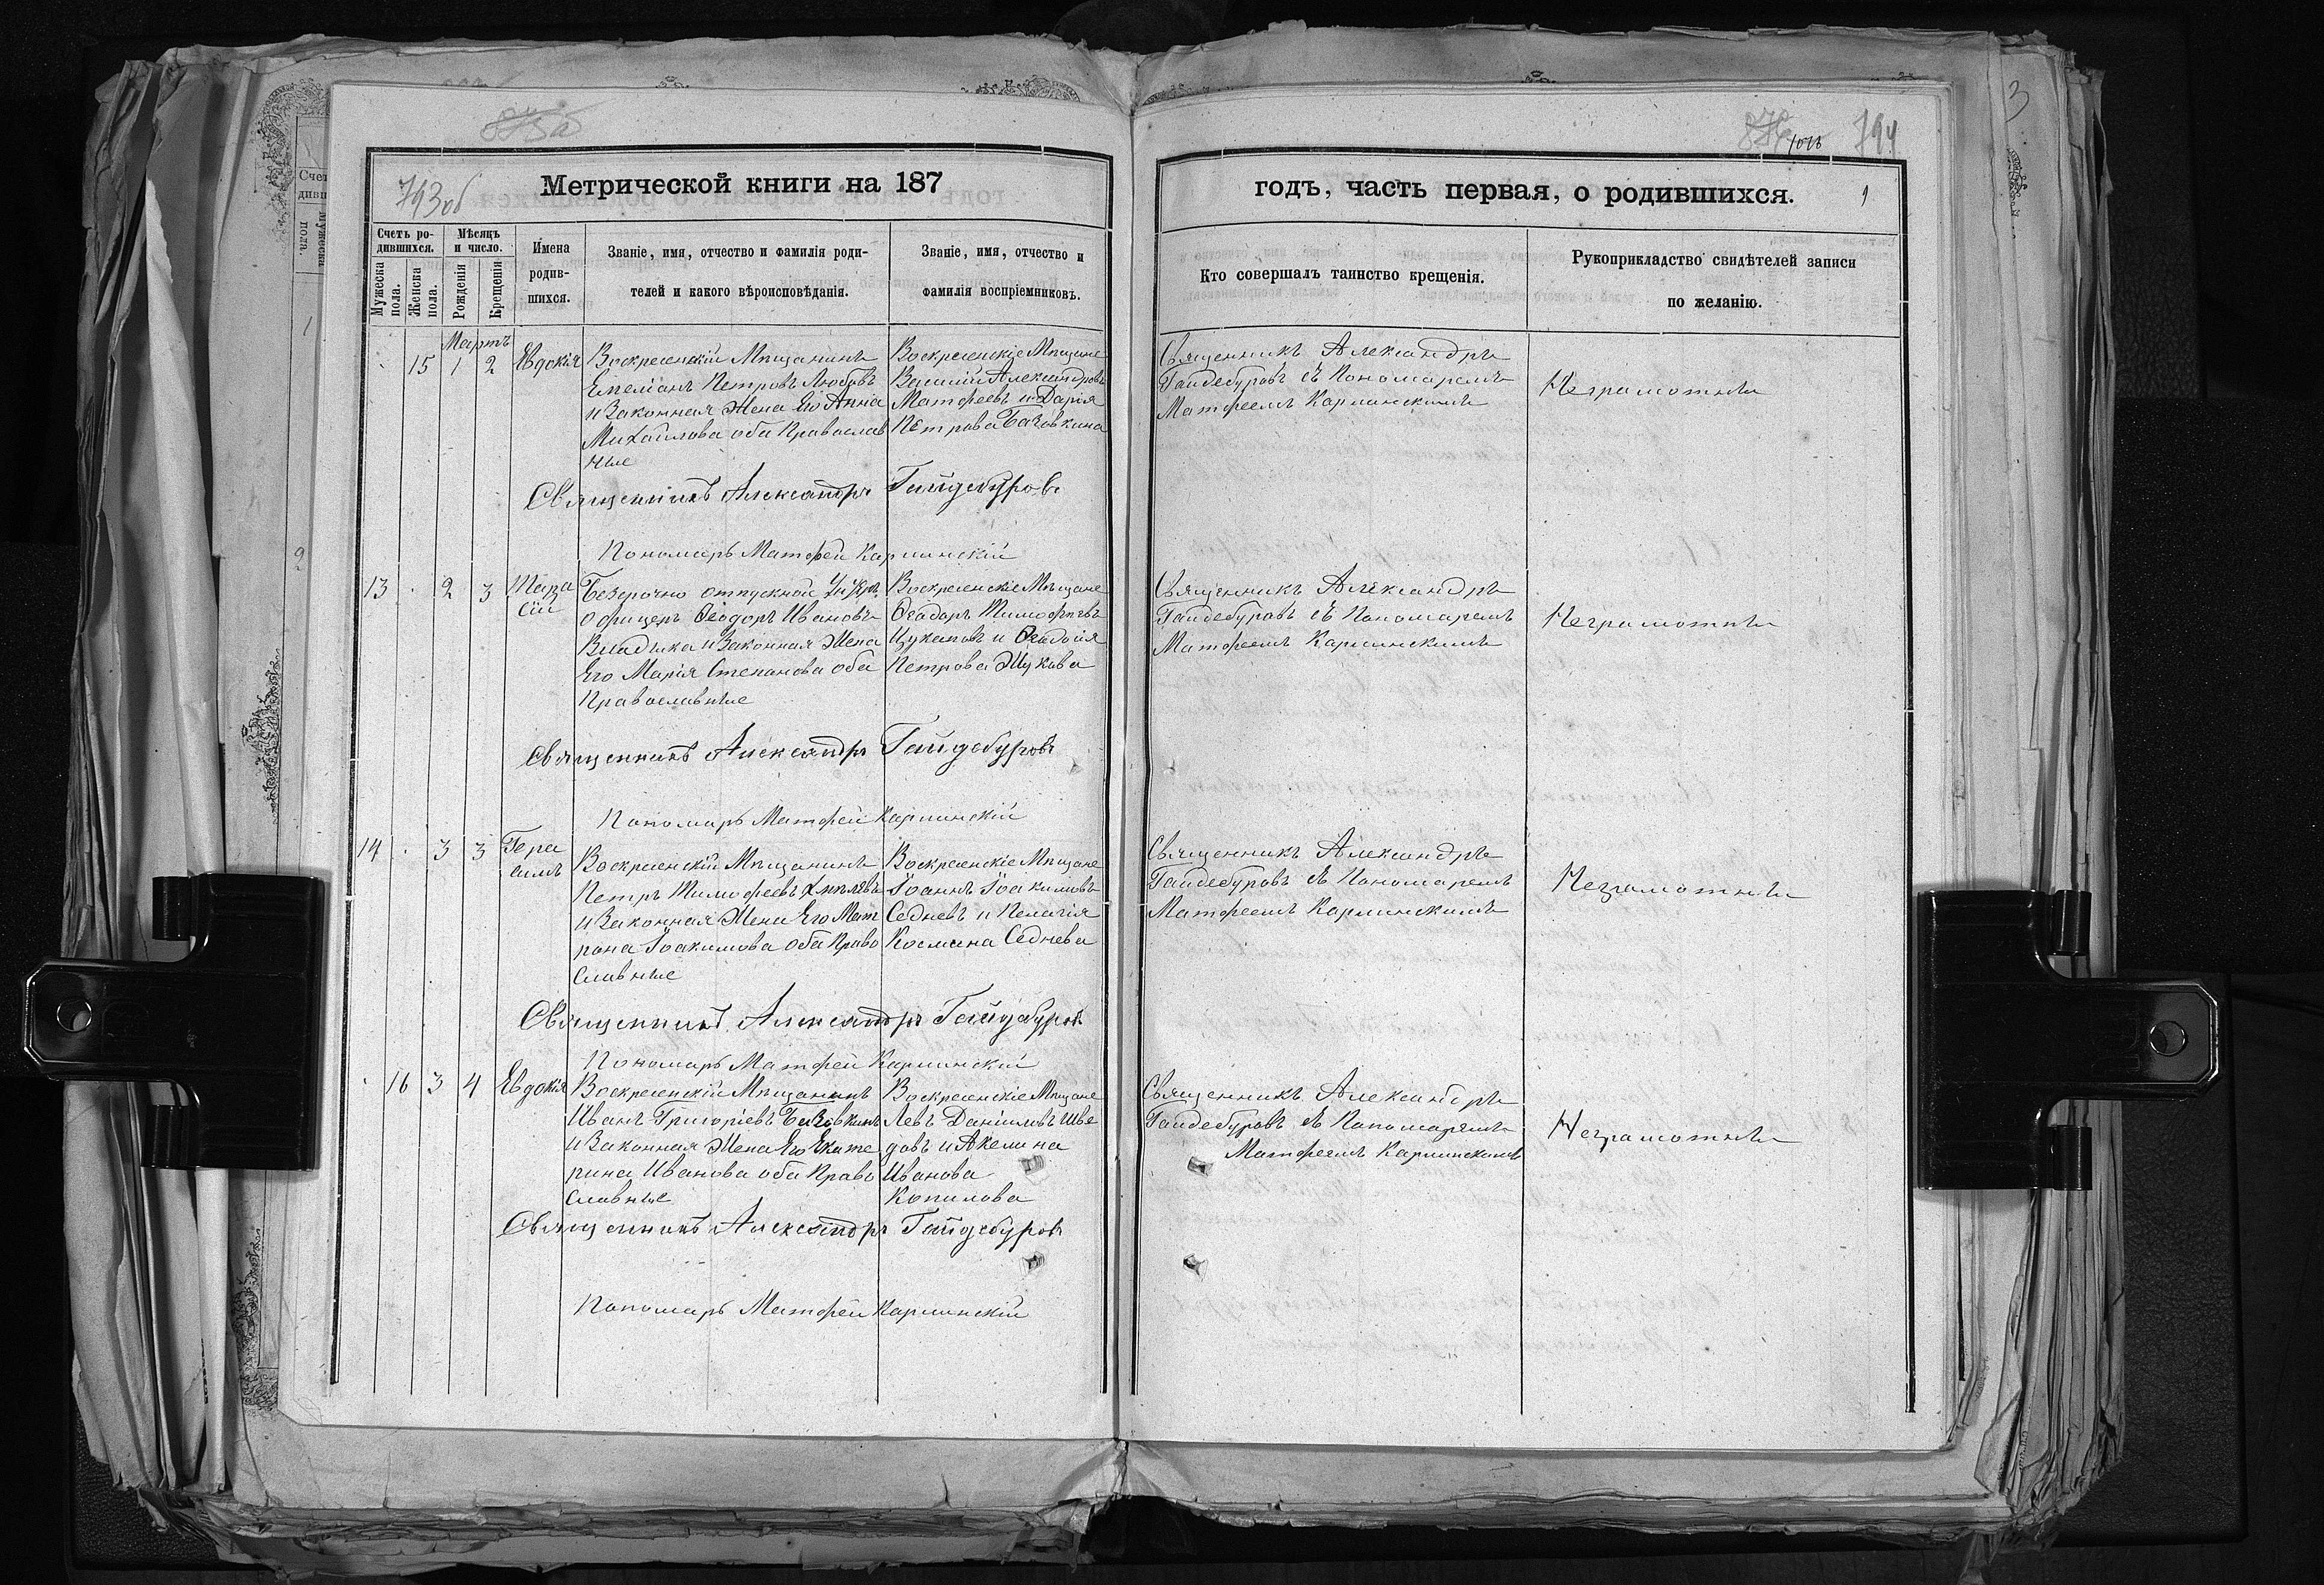 793об
Метрической книги на 187
Счетъ ро-
дившихся.
Мѣсяцъ
и число.
Имена
родив-
шихся.
Званіе, имя, отчество и фамилія роди-
телей и какого вѣроисповѣданія.
Званіе, имя, отчество и
фамилія воспріемниковъ.
Мужеска
пола.
Женска
пола.
Рожденія
Крещенія
Мартъ
15 1 2 Евдокія
Воскресенскій Мѣщанинъ
Емеліанъ Петровъ Любовъ
и Законная Жена Его Анна
Михайлова оба Православ
ные
Воскресенскіе Мѣщане
Василій Александровъ
Матфеевъ и Дарія
Петрова Бачовкина
Священникъ Александръ Гайдебуровъ
Пономарь Матфей Карпинскій
13 2 3 Тара
сій
Безсрочно отпускной Унтеръ
офицеръ Ѳеодоръ Ивановъ
Владыка и Законная Жена
Его Марія Степанова оба
Православные
Воскресенскіе Мѣщане
Ѳеодоръ Тимофѣевъ
Цукановъ и Ѳеодосія
Петрова Жукова
Священникъ Александръ Гайдебуровъ
Пономарь Матфей Карпинскій
14 3 3 Гера
симъ
Воскресенскій Мѣщанинъ
Петръ Тимофеевъ Хмѣлевъ
и Законная Жена Его Мат
рона Іоакимова оба Право
славные
Воскресенскіе Мѣщане
Іоаннъ Іоакимовъ
Седневъ и Пелагія
Космина Седнева
Священникъ Александръ Гайдебуровъ
Пономарь Матфей Карпинскій
16 3 4 Евдокія
Воскресенскій Мѣщанинъ
Иванъ Григоріевъ Базовкинъ
и Законная Жена Его Екате
рина Иванова оба Право
славные
Воскресенскіе Мѣщане
Левъ Даніиловъ Шве
довъ и Акелина
Иванова
Копилова
Священникъ Александръ Гайдебуровъ
Пономарь Матфей Карпинскій
794
годъ, часть первая, о родившихся.
Кто совершалъ таинство крещенія.
Рукоприкладство свидѣтелей записи
по желанію.
Священникъ Александръ
Гайдебуровъ съ Пономаремъ
Матфеемъ Карпинскимъ
Неграмотны
Священникъ Александръ
Гайдебуровъ съ Пономаремъ
Матфеемъ Карпинскимъ
Неграмотны
Священникъ Александръ
Гайдебуровъ съ Пономаремъ
Матфеемъ Карпинскимъ
Неграмотны
Священникъ Александръ
Гайдебуровъ съ Пономаремъ
Матфеемъ Карпинскимъ
Неграмотны